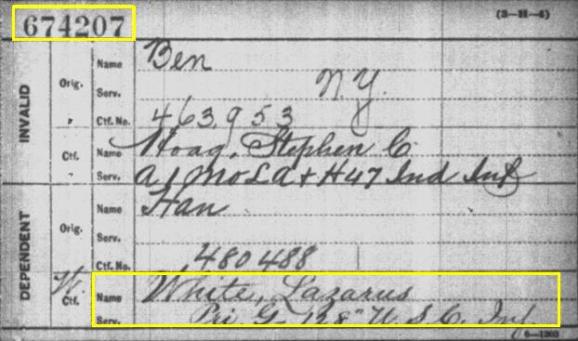 674207
(3—H—4)
INVALID
Orig.
Name Ben
Serv. N.Y.
Ctf. No. 463,953
Ctf.
Name Hoag, Stephen C.
Serv. A 1 Mo L A & H 47 Ind Inf
DEPENDENT
Orig.
Name Han
Serv.
Ctf. No. 480488
W.
Ctf.
Name White, Lazarus
Serv. Pri. G 128" U S C. Inf
6—1203